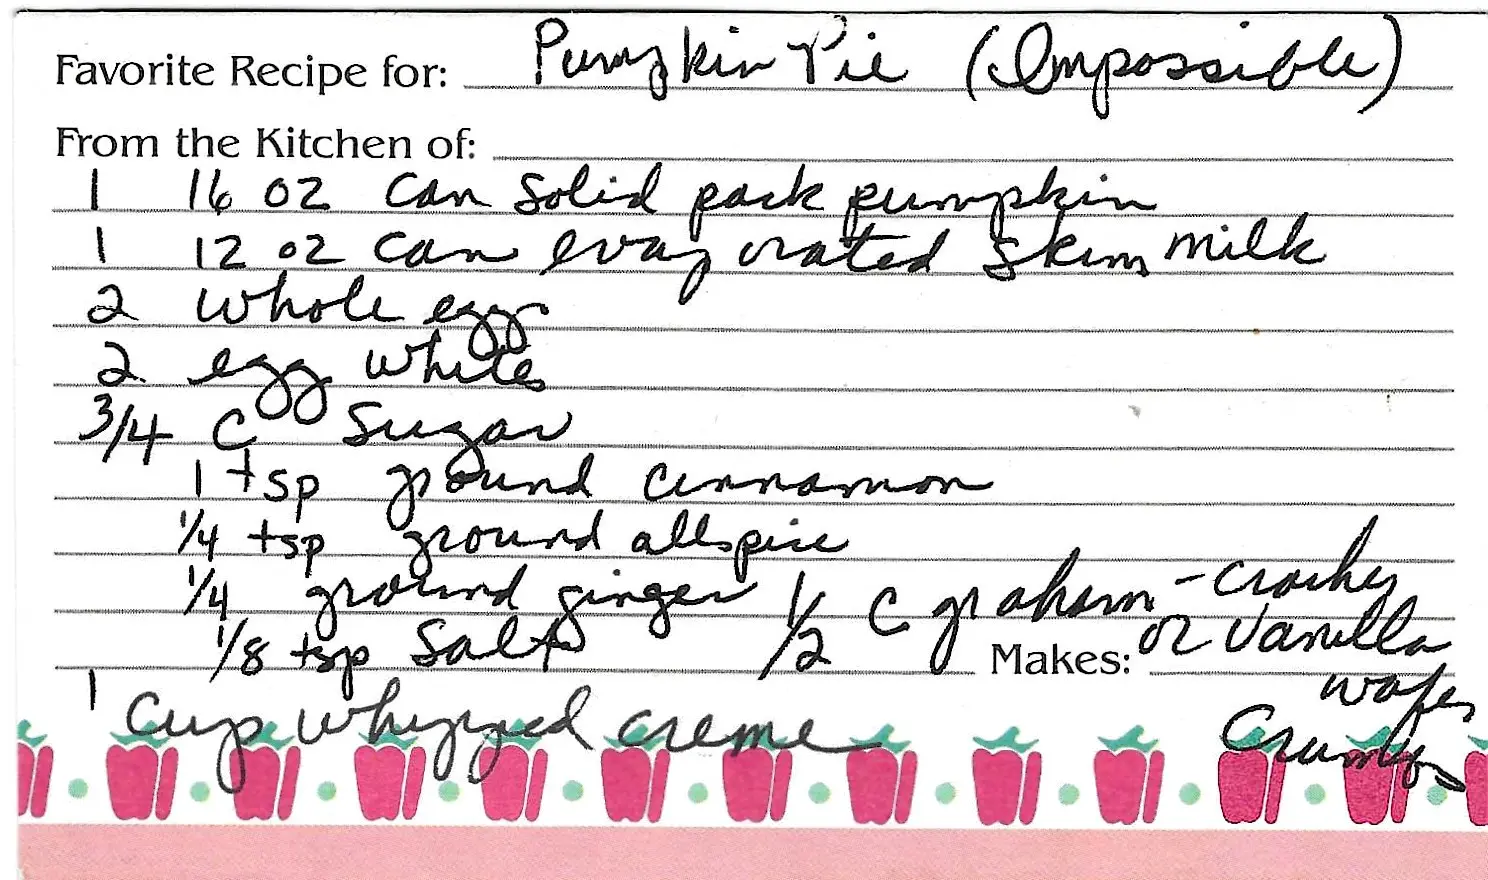 Favorite Recipe for: Pumpkin Pie (Impossible)
From the Kitchen of:
1 16 oz can solid pack pumpkin
1 12 oz can evaporated skim milk
2 whole eggs
2 egg whites
3/4 C Sugar
1 tsp ground cinnamon
1/4 tsp ground allspice
1/4 ground ginger
1/8 tsp Salt
1 cup whipped creme
1/2 C graham-cracker
or Vanilla
wafer
Crumbs
Makes: